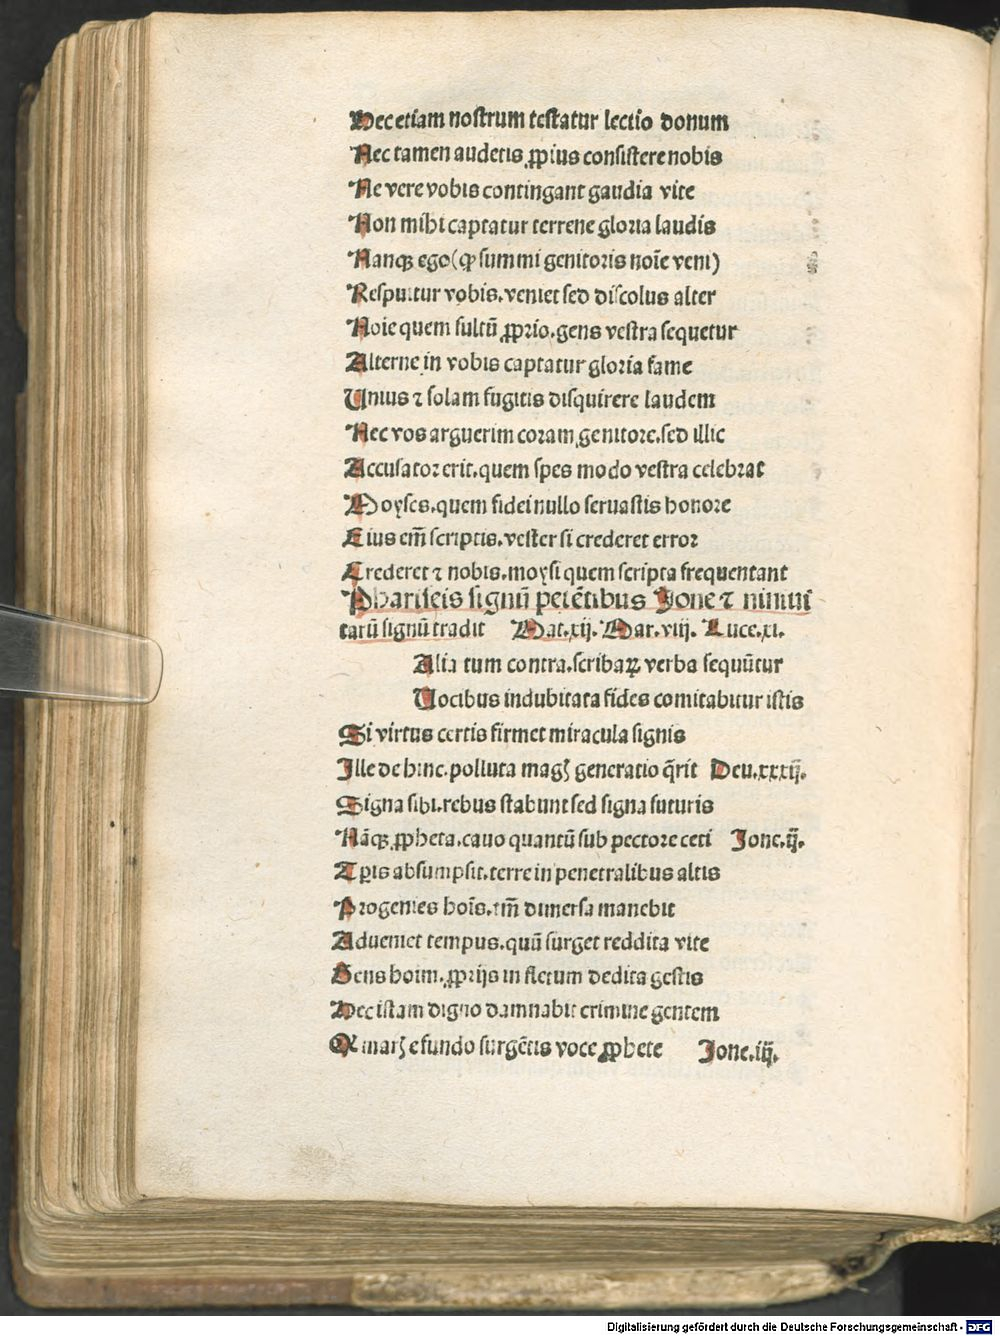 Hec etiam nostrum testatur lectio donum
Nec tamen audetis ꝓpius consistere nobis
Ne vere vobis contingant gaudia vite
Non mihi captatur terrene gloria laudis
Nanqꝫ ego (ꝙ summi genitoris noīe veni)
Respuitur vobis. veniet sed discolus alter
Noie quem sultū ꝓprio. gens vestra sequetur
Alterne in vobis captatur gloria fame
Unius ⁊ solam fugitis disquirere laudem
Nec vos arguerim coram genitore. sed illic
Accusator erit. quem spes modo vestra celebrat
Moyses. quem fidei nullo seruastis honore
Eius em̄ scriptis. vester si crederet error
Crederet ⁊ nobis. moysi quem scripta frequentant
Phariseis signū petētibus Jone ⁊ niniui
tarū signū tradit Mat.xij. Mar.viij. Luce.xi.
Alia tum contra. scribaꝝ verba sequūtur
Uocibus indubitata fides comitabitur istis
Si virtus certis firmet miracula signis
Ille dehinc. polluta mag generatio q̄rit Deu.xxxij.
Signa sibi. rebus stabunt sed signa futuris
Nāqꝫ ꝓpheta. cauo quantū sub pectore ceti Jone.ij.
Tꝑis absumpsit. terre in penetralibus altis
Progenies hoīs. tm̄ dimersa manebit
Adueniet tempus. quū surget reddita vite
Gens hoim. ꝓprijs in fletum dedita gestis
Hec istam digno damnabit crimine gentem
Q marꝭ e fundo surgētis voce ꝓphete Jone.iij.
Digitalisierung gefördert durch die Deutsche Forschungsgemeinschaft - DFG